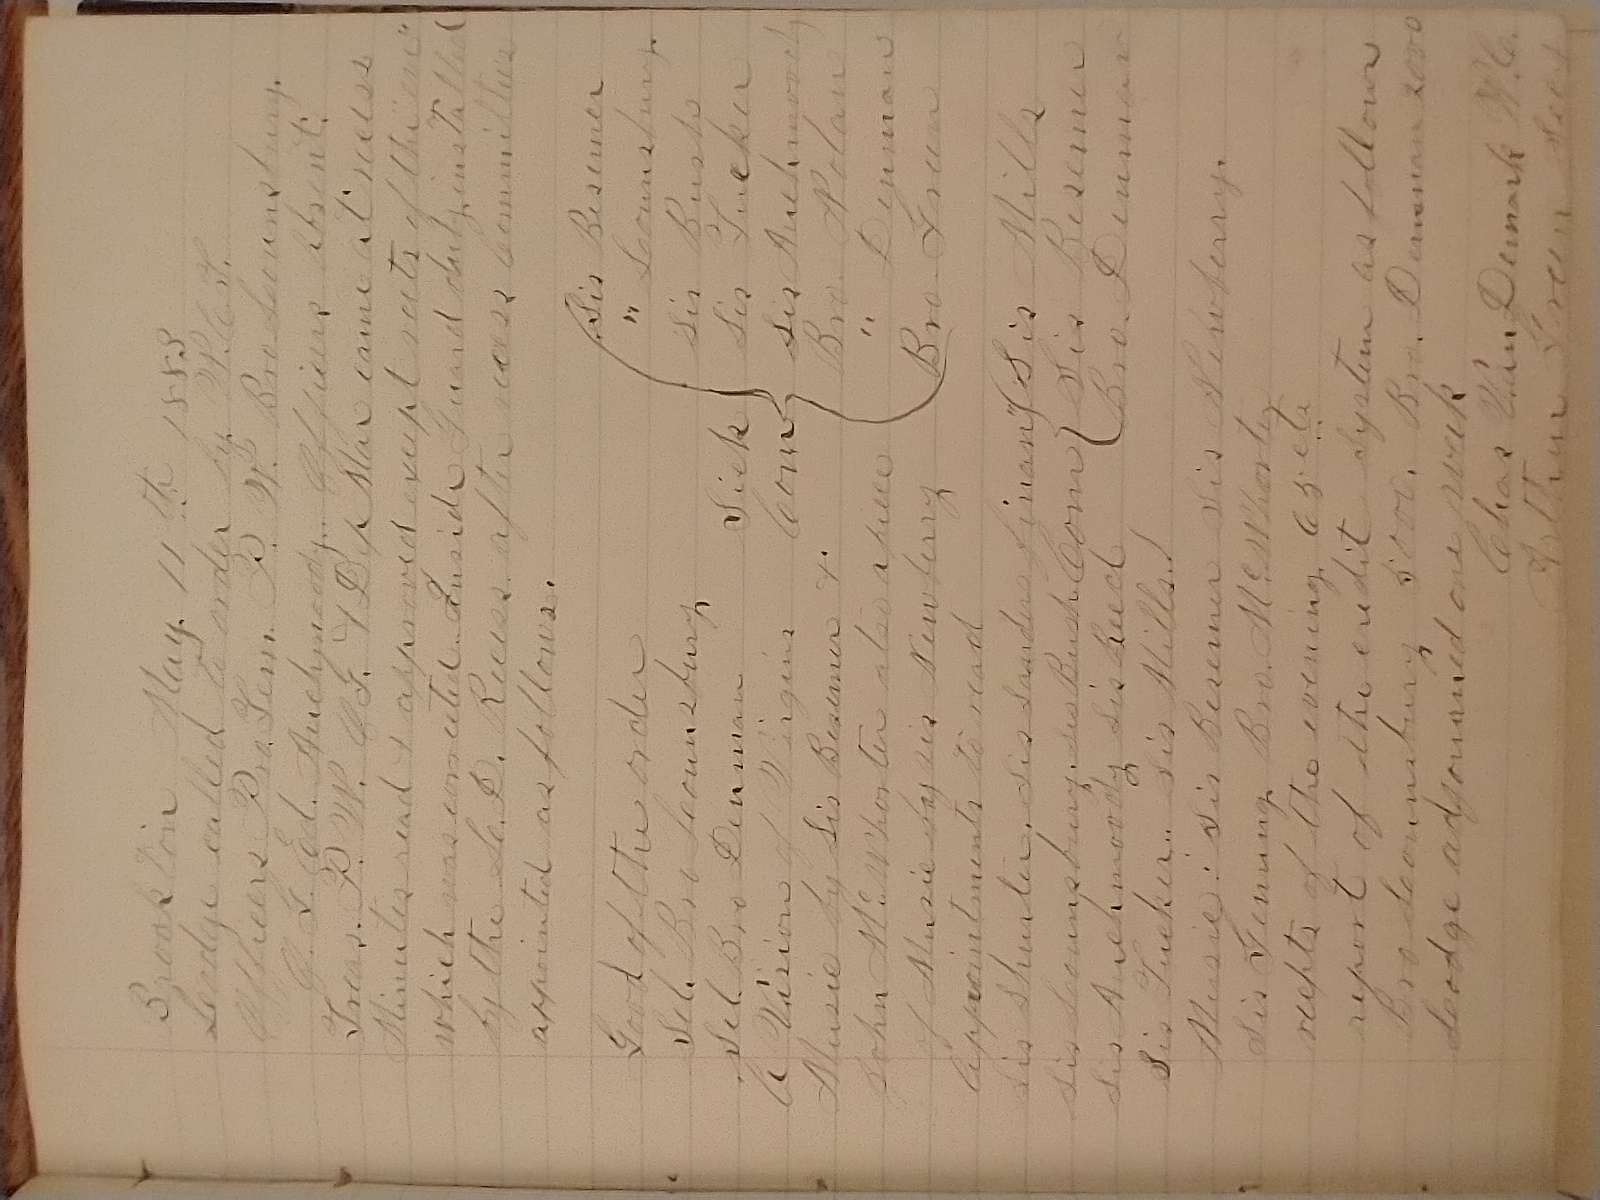 Brookton May 11th 1883
Lodge called to order by W.C.T.
Officers Pro.Tem. P. W. Bro Lounsbury.
O. G. Ed. Auchmoody.. Officers absent.
Treas. P. W. O G. & Dep Mar came at recess
Minutes read & approved except rects of the "eve"
which was corrected. Inside Guard duly installed
by the L. D. Recess. after recess Committees
appointed as follows.
Good of the order
Sel. Bro Lounsbury
Sel. Bro Denman
A Vision of Virgins
Music by Sis Besemer &
John Mc.Whorter also a piece
of Music by sis Newberry
Sick
Com
Sis Besemer
" Lounsbury.
Sis Bush
Sis Tucker
Sis Auchmoody
Bro. Nolan
" Denman
Bro. Green
Appointments to read
Sis Shurter. Sis Sanders
Sis Lounsbury. Sis Bush
Sis Auchmoody Sis Reed
Sis Tucker.. Sis Mills.
finan"
Com
Sis Mills
Sis Besemer
Bro. Denman
Music: Sis Besemer Sis Newberry.
Sis Genung Bro. Mc.Whorter
recpts of the evening. 65 cts
report of the credit system as follows
Bro Lounsbury 5000. Bro. Denman 2000
Lodge adjourned one week
Chas VanDemark W.C.
Arthur Green Sect